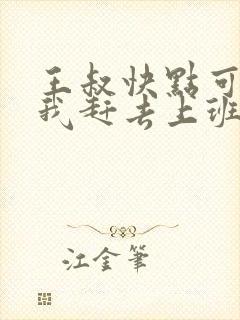 王叔快點可
我赶去上班
江金筆